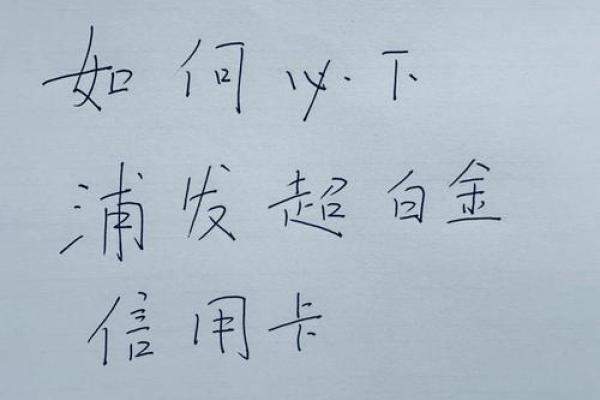 如何必下
浦发超白金
信用卡